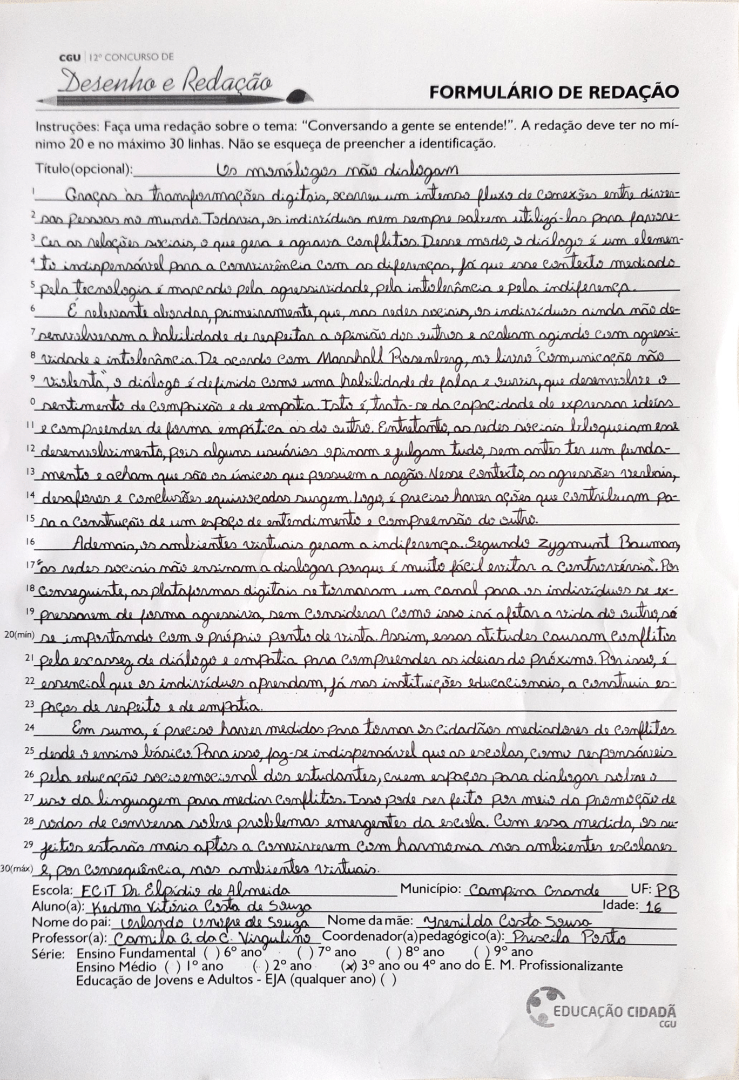 CGU | 12º CONCURSO DE
Desenho e Redação
FORMULÁRIO DE REDAÇÃO
Instruções: Faça uma redação sobre o tema: "Conversando a gente se entende!". A redação deve ter no mí-
nimo 20 e no máximo 30 linhas. Não se esqueça de preencher a identificação.
Título(opcional): Os monólogos não dialogam
1 Graças às transformações digitais, ocorreu um intenso fluxo de conexões entre diver-
2 sas pessoas no mundo. Todavia, os indivíduos nem sempre sabem utilizá-las para favore-
3 cer as relações sociais, o que gera e agrava conflitos. Desse modo, o diálogo é um elemen-
4 to indispensável para a convivência com as diferenças, já que esse contexto mediado
5 pela tecnologia é marcado pela agressividade, pela intolerância e pela indiferença.
6 É relevante abordar, primeiramente, que, nas redes sociais, os indivíduos ainda não de-
7 senvolveram a habilidade de respeitar a opinião dos outros e acabam agindo com agressi-
8 vidade e intolerância. De acordo com Marshall Rosenberg, no livro "Comunicação não
9 violenta", o diálogo é definido como uma habilidade de falar e ouvir, que desenvolve o
0 sentimento de compaixão e de empatia. Isto é, trata-se da capacidade de expressar ideias
11 e compreender de forma empática as do outro. Entretanto, as redes sociais bloqueiam esse
12 desenvolvimento, pois alguns usuários opinam e julgam tudo, sem antes ter um funda-
13 mento e acham que são os únicos que possuem a razão. Nesse contexto, as agressões verbais,
14 desaforos e conclusões equivocadas surgem. Logo, é preciso haver ações que contribuam pa-
15 ra a construção de um espaço de entendimento e compreensão do outro.
16 Ademais, os ambientes virtuais geram a indiferença. Segundo Zygmunt Bauman,
17 "as redes sociais não ensinam a dialogar porque é muito fácil evitar a controvérsia". Por
18 conseguinte, as plataformas digitais se tornaram um canal para os indivíduos se ex-
19 pressarem de forma agressiva, sem considerar como isso irá afetar a vida do outro, só
20(mín) se importando com o próprio ponto de vista. Assim, essas atitudes causam conflitos
21 pela escassez de diálogo e empatia para compreender as ideias do próximo. Por isso, é
22 essencial que os indivíduos aprendam, já nas instituições educacionais, a construir es-
23 paços de respeito e de empatia.
24 Em suma, é preciso haver medidas para tornar os cidadãos mediadores de conflitos
25 desde o ensino básico. Para isso, faz-se indispensável que as escolas, como responsáveis
26 pela educação socioemocional dos estudantes, criem espaços para dialogar sobre o
27 uso da linguagem para mediar conflitos. Isso pode ser feito por meio da promoção de
28 rodas de conversa sobre problemas emergentes da escola. Com essa medida, os su-
29 jeitos estarão mais aptos a conviverem com harmonia nos ambientes escolares
30(máx) e, por consequência, nos ambientes virtuais.
Escola: ECIT Dr. Elpídio de Almeida Município: Campina Grande UF: PB
Aluno(a): Kedma Vitória Costa de Souza Idade: 16
Nome do pai: Orlando Onofre de Souza Nome da mãe: Yrenilda Costa Sousa
Professor(a): Camila G. da C. Virgulino Coordenador(a)pedagógico(a): Priscila Porto
Série: Ensino Fundamental ( ) 6º ano ( ) 7º ano ( ) 8º ano ( ) 9º ano
Ensino Médio ( ) 1º ano ( ) 2º ano (x) 3º ano ou 4º ano do E. M. Profissionalizante
Educação de Jovens e Adultos - EJA (qualquer ano) ( )
EDUCAÇÃO CIDADÃ
CGU